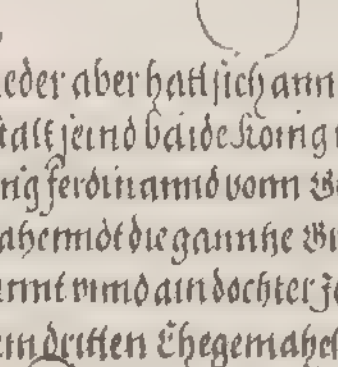 eder aber hatt sich ann
talt seind baide König
nig ferdinannd vonn
ahenndt die ganntze
ennt vnnd ain dochter
ein dritten Ehegemahel